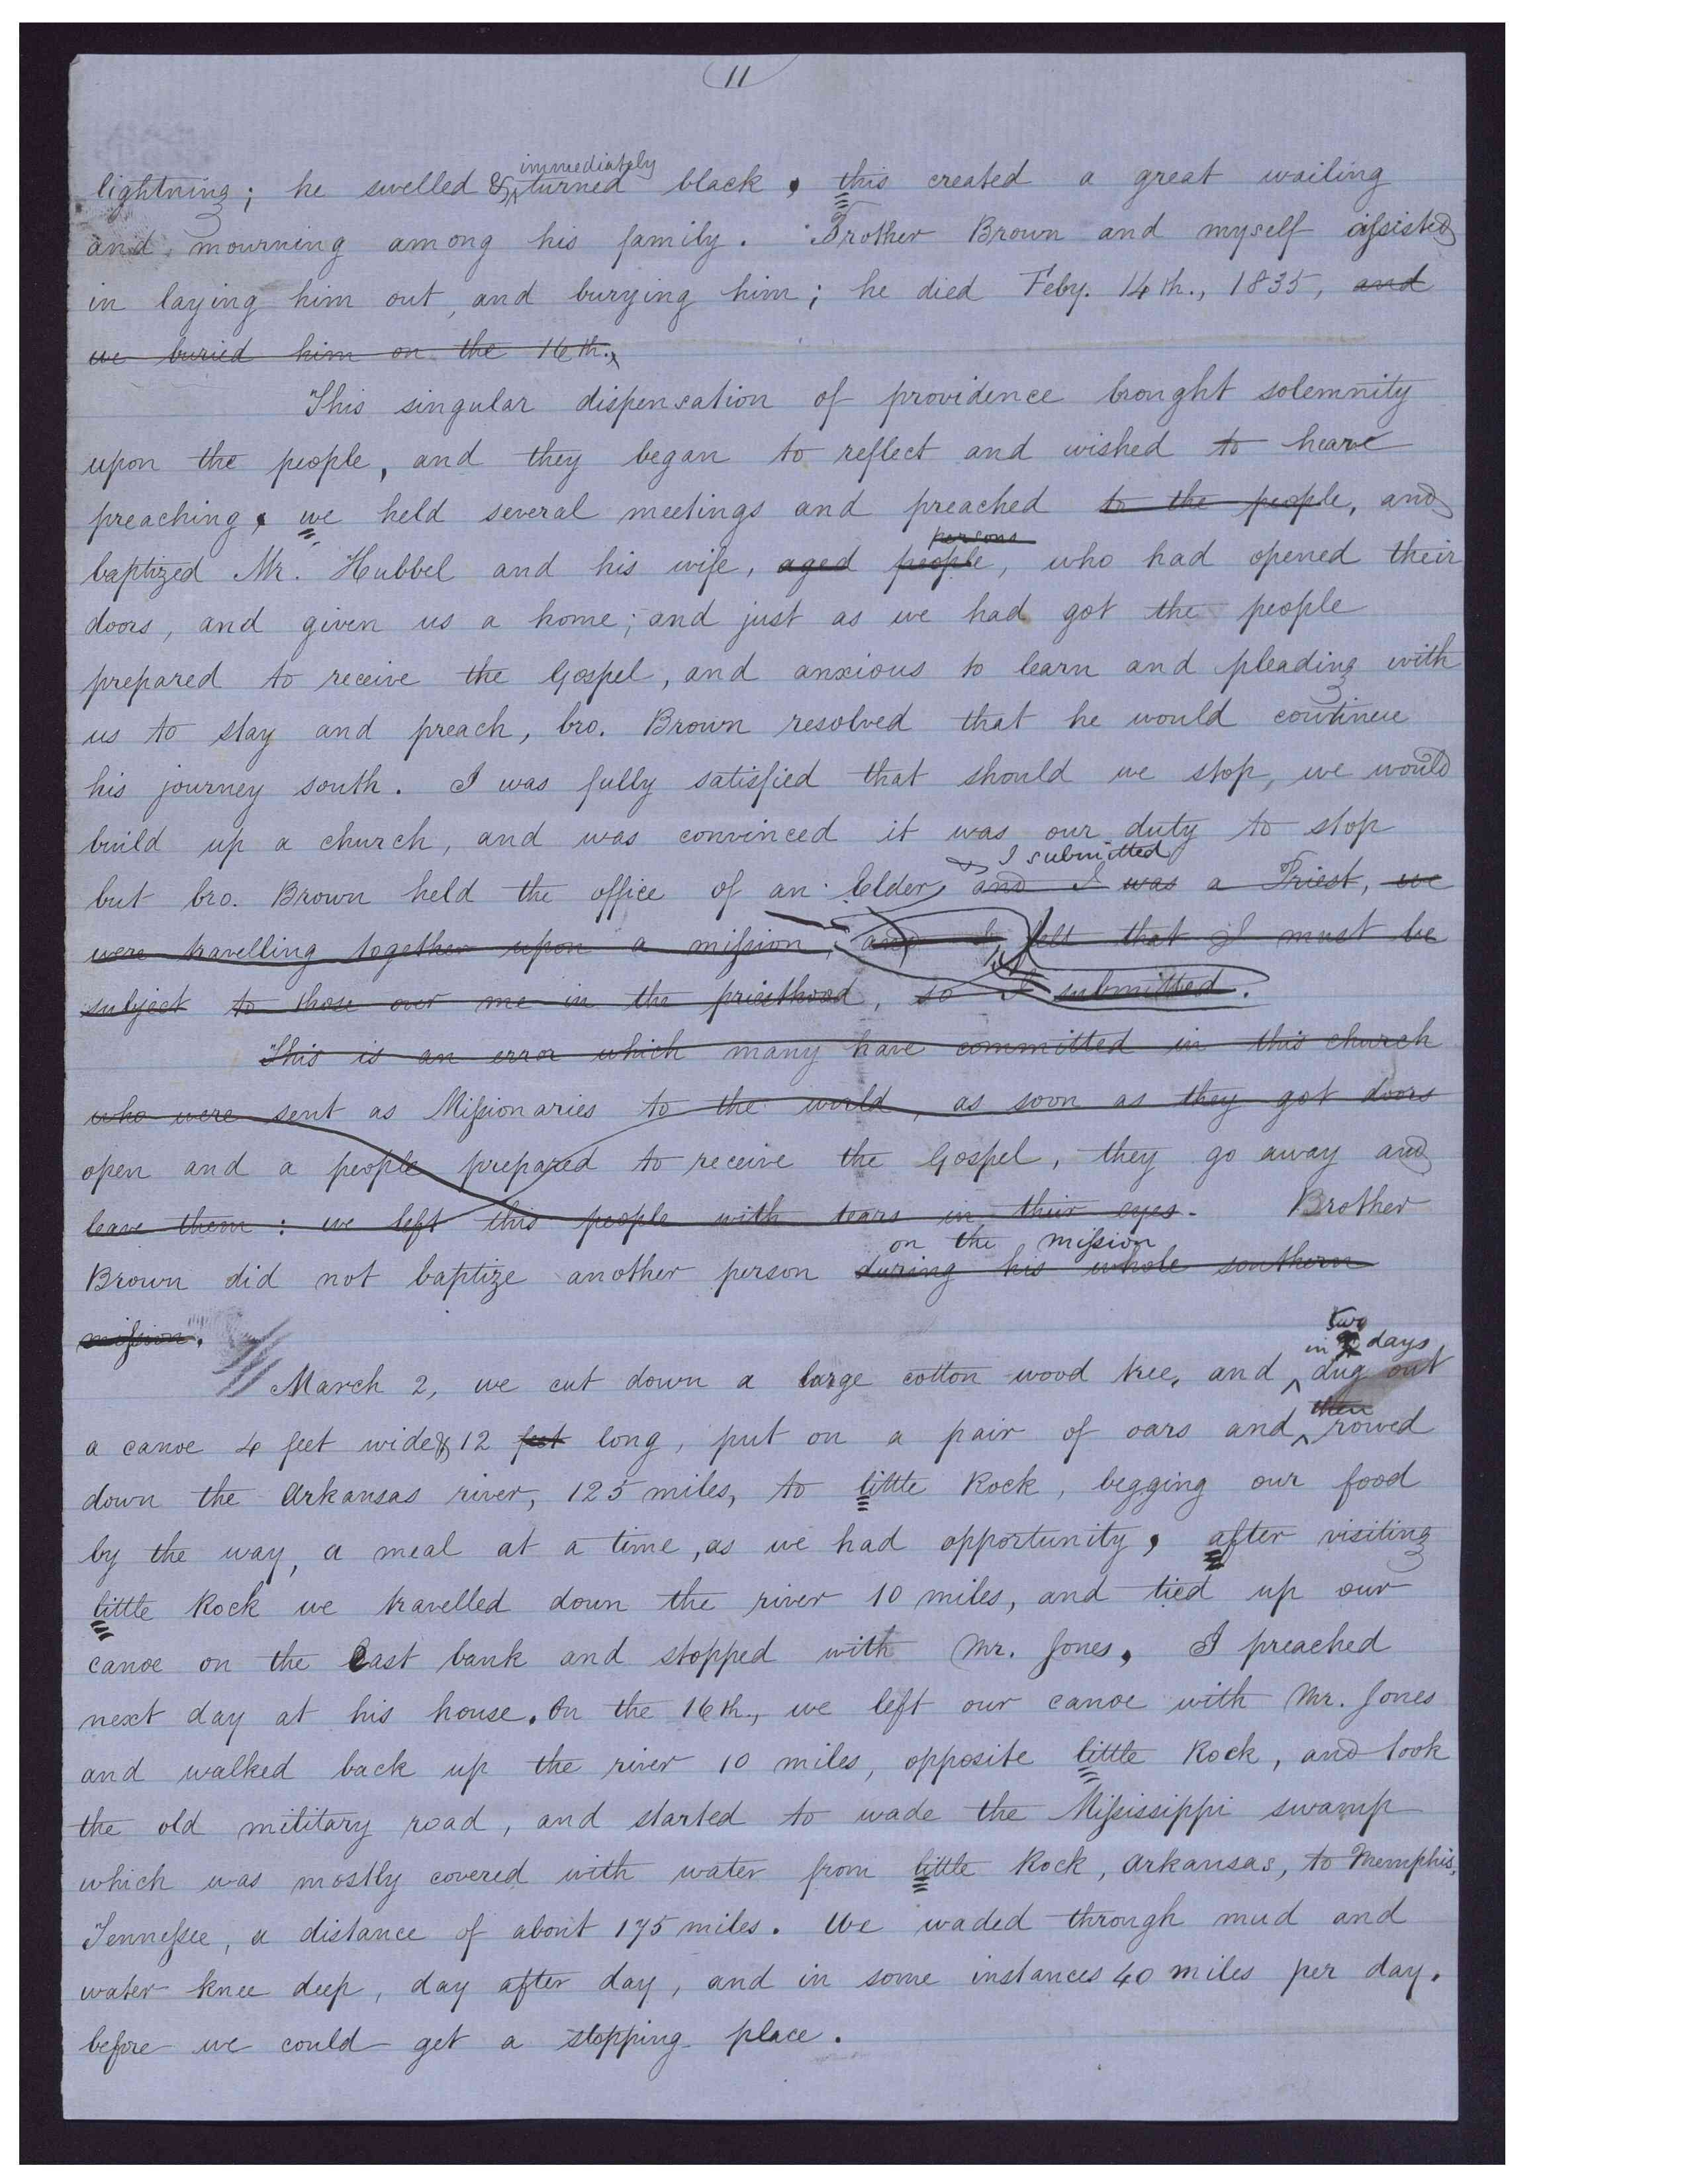 11
immediately
lightning; he swelled & turned black, this created a great wailing
and mourning among his family. Brother Brown and myself assisted
in laying him out, and burying him; he died Feby. 14th., 1835, and
we buried him on the 16th.,
This singular dispensation of providence brought solemnity
upon the people, and they began to reflect and wished to heare
preaching, we held several meetings and preached to the people, and
persons
baptized Mr. Hubbel and his wife, aged people, who had opened their
doors, and given us a home; and just as we had got the people
prepared to receive the Gospel, and anxious to learn and pleading with
us to stay and preach, bro. Brown resolved that he would continue
his journey south. I was fully satisfied that should we stop, we would
build up a church, and was convinced it was our duty to stop
& I submitted
but bro. Brown held the office of an Elder, and I was a Priest, we
were travelling together upon a mission; and I felt that I must be
subject to those over me in the priesthood, so I submitted.
This is an error which many have committed in this church
who were sent as Missionaries to the world, as soon as they got doors
open and a people prepared to receive the Gospel, they go away and
leave them: we left this people with tears in their eyes. Brother
on the mission
Brown did not baptize another person during his whole southern
mission.
two
in 2 days
March 2, we cut down a large cotton wood tree, and ^ dug out
then
a canoe 4 feet wide & 12 feet long, put on a pair of oars and ^ rowed
down the Arkansas river, 125 miles, to little Rock, begging our food
by the way, a meal at a time, as we had opportunity, after visiting
little Rock we travelled down the river 10 miles, and tied up our
canoe on the East bank and stopped with Mr. Jones, I preached
next day at his house. On the 16th., we left our canoe with Mr. Jones
and walked back up the river 10 miles, opposite little Rock, and took
the old military road, and started to wade the Mississippi swamp
which was mostly covered with water from little Rock, Arkansas, to Memphis,
Tennessee, a distance of about 175 miles. We waded through mud and
water knee deep, day after day, and in some instances 40 miles per day.
before we could get a stopping place.